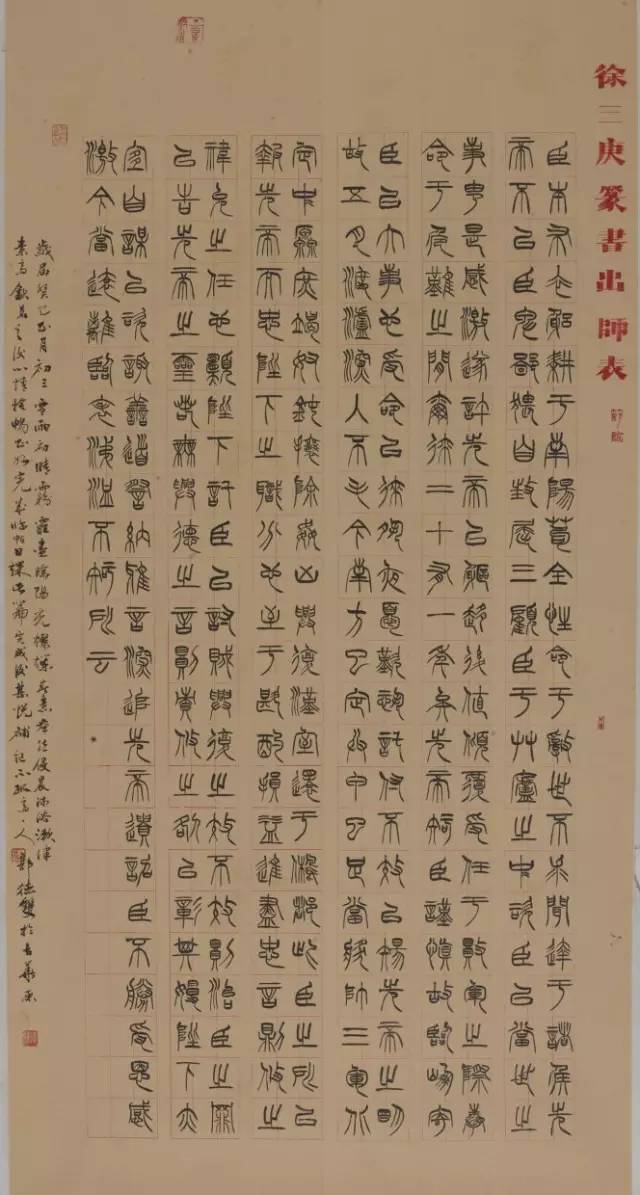 徐三庚篆書出師表
臣本布衣躬耕于南陽苟全性命于亂世不求聞達于諸侯先
帝不以臣卑鄙猥自封屈三顧臣于艸廬之中諮臣以當世之
事由是感激遂許先帝以驅馳後值傾覆受任于敗軍之際奉
命于危難之間爾來二十有一年矣先帝知臣謹慎故臨崩寄
臣以大事也受命以來夙夜憂歎恐託付不效以傷先帝之明
故五月渡瀘深入不毛今南方已定兵甲已足當獎帥三軍北
定中原庶竭駑鈍攘除姦凶興復漢室還于舊都此臣之所以
報先帝而忠陛下之職分也至于斟酌損益進盡忠言則攸之
禕允之任也願陛下託臣以討賊興復之效不效則治臣之罪
以告先帝之靈若無興德之言則責攸之以彰其慢陛下亦
宜自謀以諮諏善道察納雅言深追先帝遺詔臣不勝受恩感
激今當遠離臨表涕泣不知所云
歲屆癸巳正月初三雪雨初晴